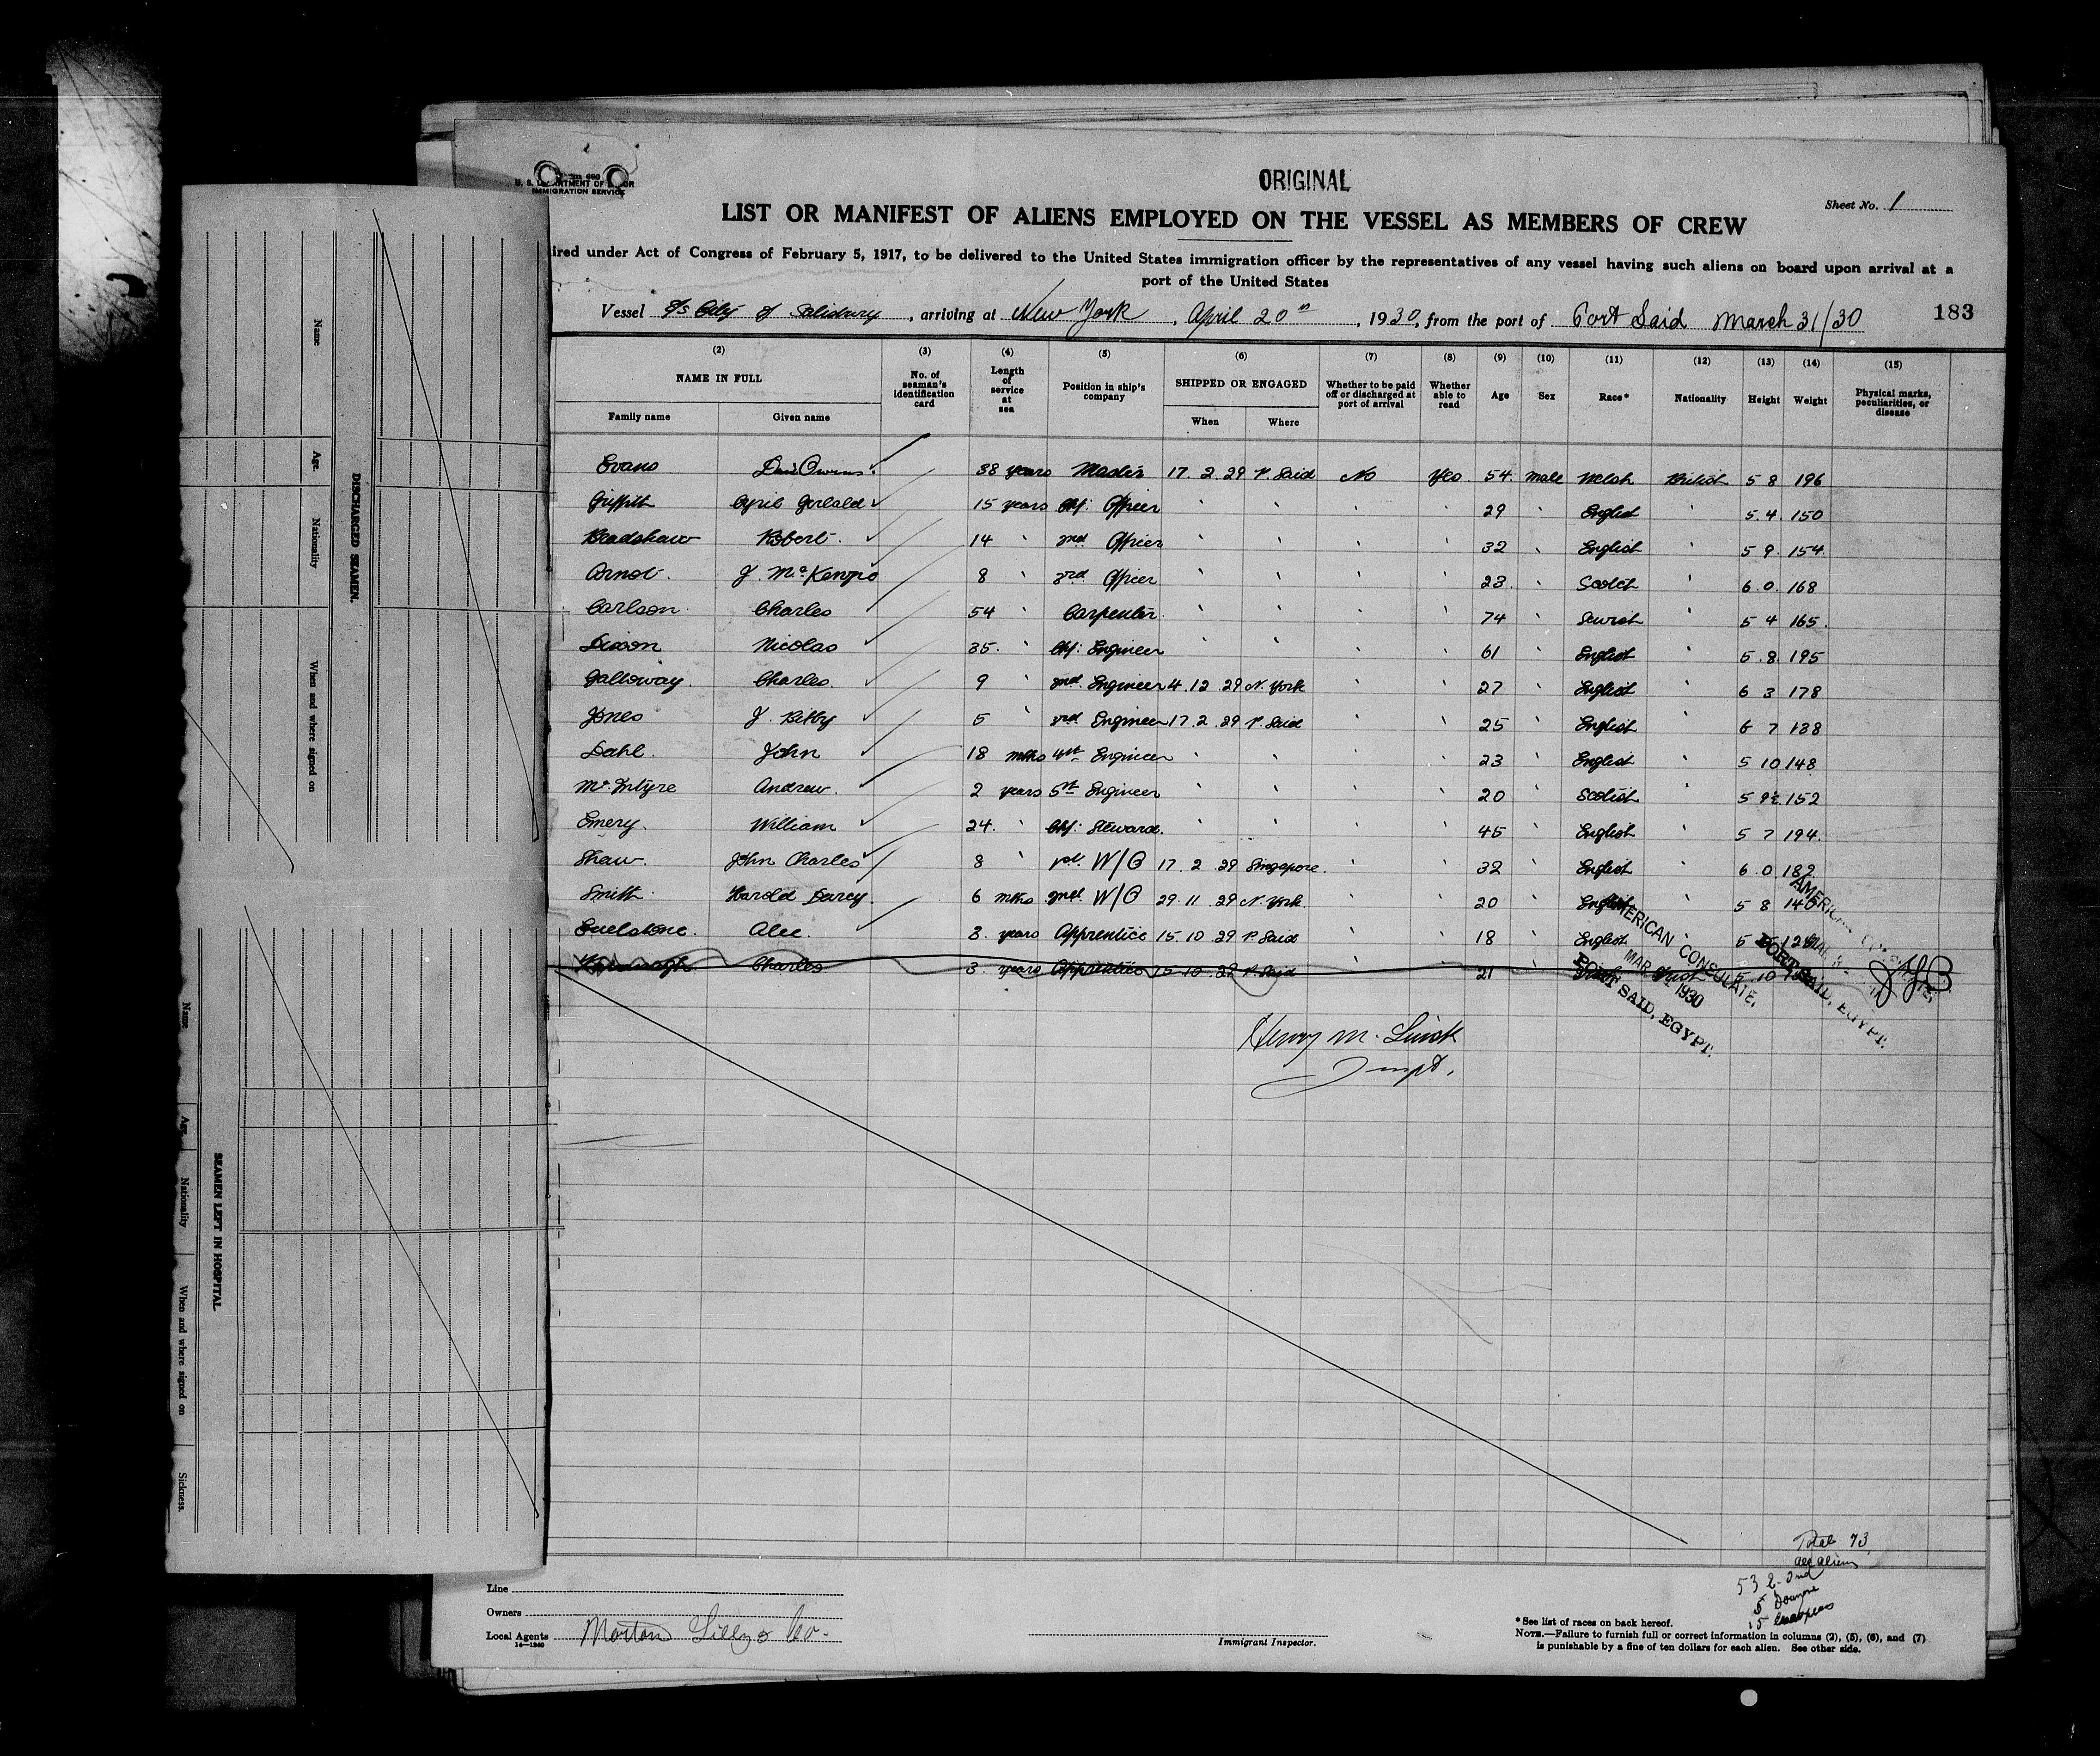 ORIGINAL
U. S. DEPARTMENT OF LABOR
IMMIGRATION SERVICE
Sheet No. 1
LIST OR MANIFEST OF ALIENS EMPLOYED ON THE VESSEL AS MEMBERS OF CREW
ired under Act of Congress of February 5, 1917, to be delivered to the United States immigration officer by the representatives of any vessel having such aliens on board upon arrival at a
port of the United States
Vessel S/s City of Salisbury, arriving at New York, April 20th, 1930, from the port of Port Said March 31/30
183
(2) (3) (4) (5) (6) (7) (8) (9) (10) (11) (12) (13) (14) (15)
NAME IN FULL No. of seaman's identification card Length of service at sea Position in ship's company SHIPPED OR ENGAGED Whether to be paid off or discharged at port of arrival Whether able to read Age Sex Race* Nationality Height Weight Physical marks, peculiarities, or disease
Family name Given name When Where
Evans 38 years Master 17. 2. 29 P. Said No Yes 54 male Welsh British 5 8 196
Griffith Cyril Gerald 15 years Chf: Officer 29 English 5. 4. 150
Bradshaw Robert 14 2nd Officer 32 English 5 9. 154
Arnot. J. McKenzie 8 3rd Officer 23. Scotch 6. 0. 168
Carlson Charles 54 Carpenter 74 5 4 165.
Dixon Nicolas 35. Chf: Engineer 61 English 5. 8. 195
Galloway. Charles. 9 2nd Engineer 4. 12. 29 N. York 27 English 6 3 178
Jones J. Kirby 5 3rd Engineer 17. 2. 29 P. Said 25 English 6 7 138
Dahl. John 18 mths 4th Engineer 23 English 5 10 148
McIntyre Andrew. 2 years 5th Engineer 20 Scotish 5 9½ 152
Emery. William 24. Chf: Steward. 45 English 5 7 194.
Shaw. John Charles 8 1st. W/O 17. 2. 29 Singapore. 32 English 6. 0 182
Smith Harold Darcy. 6 mths 2nd. W/O 29. 11. 29 N. York. 20 English 5 8 140
Alec. 3. years Apprentice 15. 10. 29 P. Said 18 English 5
Kavanagh Charles 3. years Apprentice 15. 10. 29 P. Said 21 Irish 5. 10
AMERICAN CONSULATE,
MAR 1930
PORT SAID, EGYPT.
AMERICAN CONSULATE,
PORT SAID, EGYPT.
Henry M.
Inspt.
Total 73
all aliens
Line
Owners
Local Agents Norton Lilly & Co.
14—1240
Immigrant Inspector.
*See list of races on back hereof.
NOTE.—Failure to furnish full or correct information in columns (2), (5), (6), and (7)
is punishable by a fine of ten dollars for each alien. See other side.
DISCHARGED SEAMEN.
Name Age. Nationality When and where signed on
SEAMEN LEFT IN HOSPITAL
Name. Age. Nationality When and where signed on Sickness.